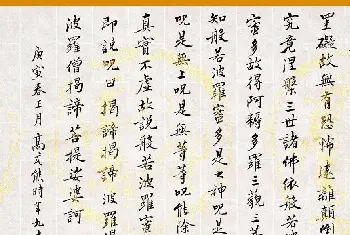 罣礙故無有恐怖遠離顛倒
究竟涅槃三世諸佛依般若波
蜜多故得阿耨多羅三藐三菩
知般若波羅蜜多是大神呪是
呪是無上呪是無等等呪能除
真實不虛故說般若波羅蜜
即說呪曰揭諦揭諦波羅揭
波羅僧揭諦菩提娑婆訶
庚寅春正月高文熊時年九十